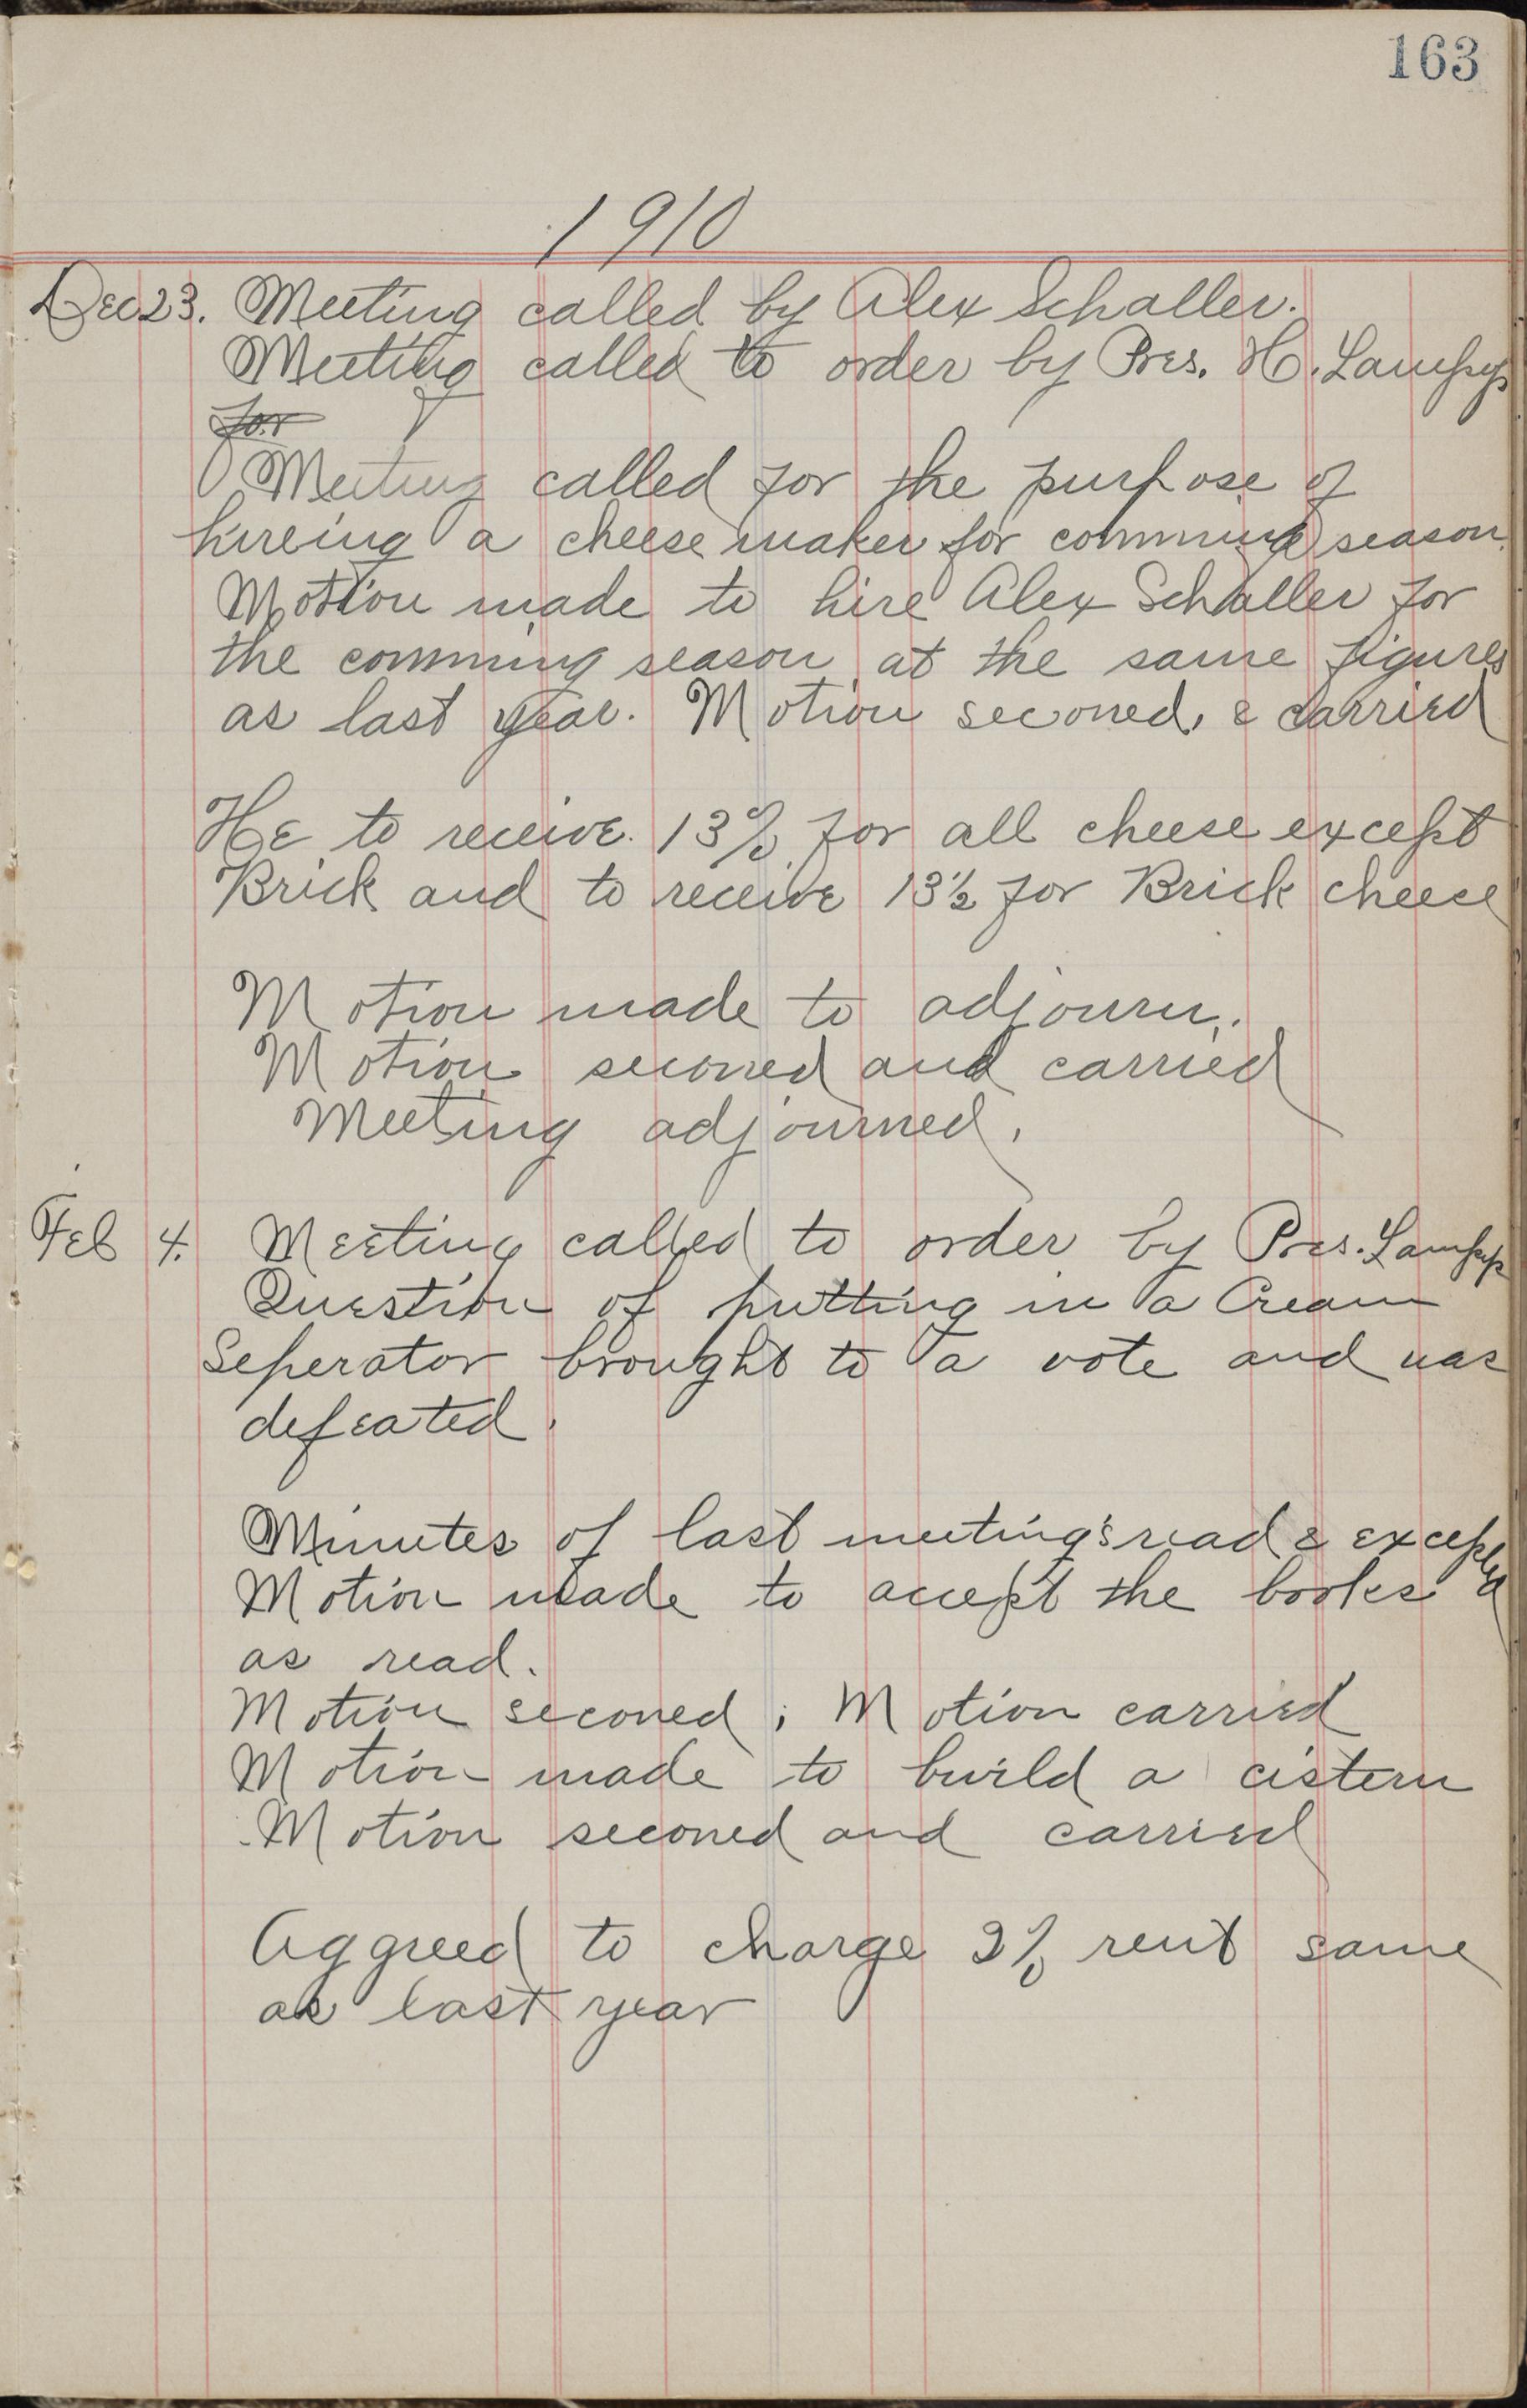 163
1910
Dec 23. Meeting called by Alex Schaller.
Meeting called to order by Pres. H. Lampp
for
Meeting called for the purpose of
hireing a cheese maker for comming season.
Motion made to hire Alex Schaller for
the comming season at the same figures
as last year. Motion seconed, & carried
He to receive 13% for all cheese except
Brick and to receive 13½ for Brick cheese
Motion made to adjourn.
Motion seconed and carried
Meeting adjourned.
Feb 4. Meeting called to order by Pres. Lampp
Question of putting in a Cream
Seperator brought to a vote and was
defeated.
Minutes of last meeting's read & excepted
Motion made to accept the books
as read.
Motion seconed; Motion carried
Motion made to build a cistern
Motion seconed and carried
Aggreed to charge 2% rent same
as last year